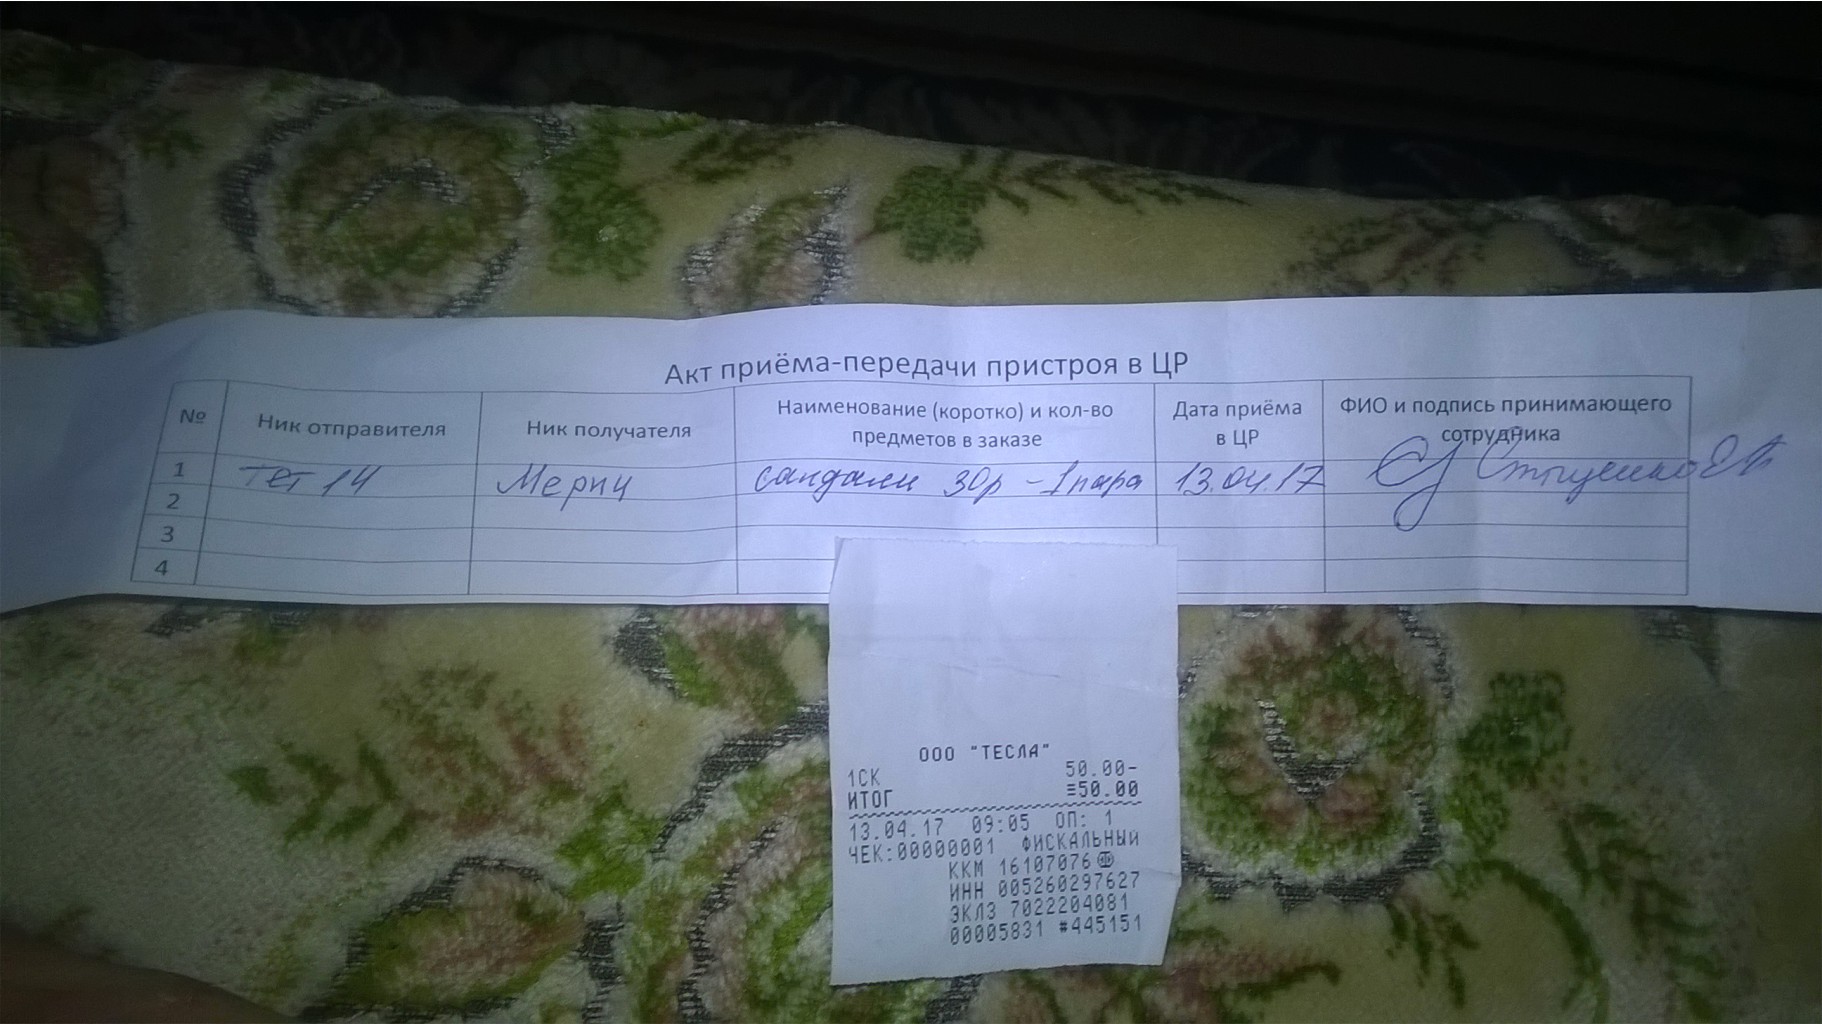 Акт приёма-передачи пристроя в ЦР
№ Ник отправителя Ник получателя Наименование (коротко) и кол-во предметов в заказе Дата приёма в ЦР ФИО и подпись принимающего сотрудника
1 тет 14 Мерпи сандали 30р - 1 пара 13.04.17
2
3
4
ООО "ТЕСЛА"
1СК 50.00-
ИТОГ ≡50.00
13.04.17 09:05 ОП: 1
ЧЕК:00000001 ФИСКАЛЬНЫЙ
ККМ 16107076
ИНН 005260297627
ЭКЛЗ 7022204081
00005831 #445151